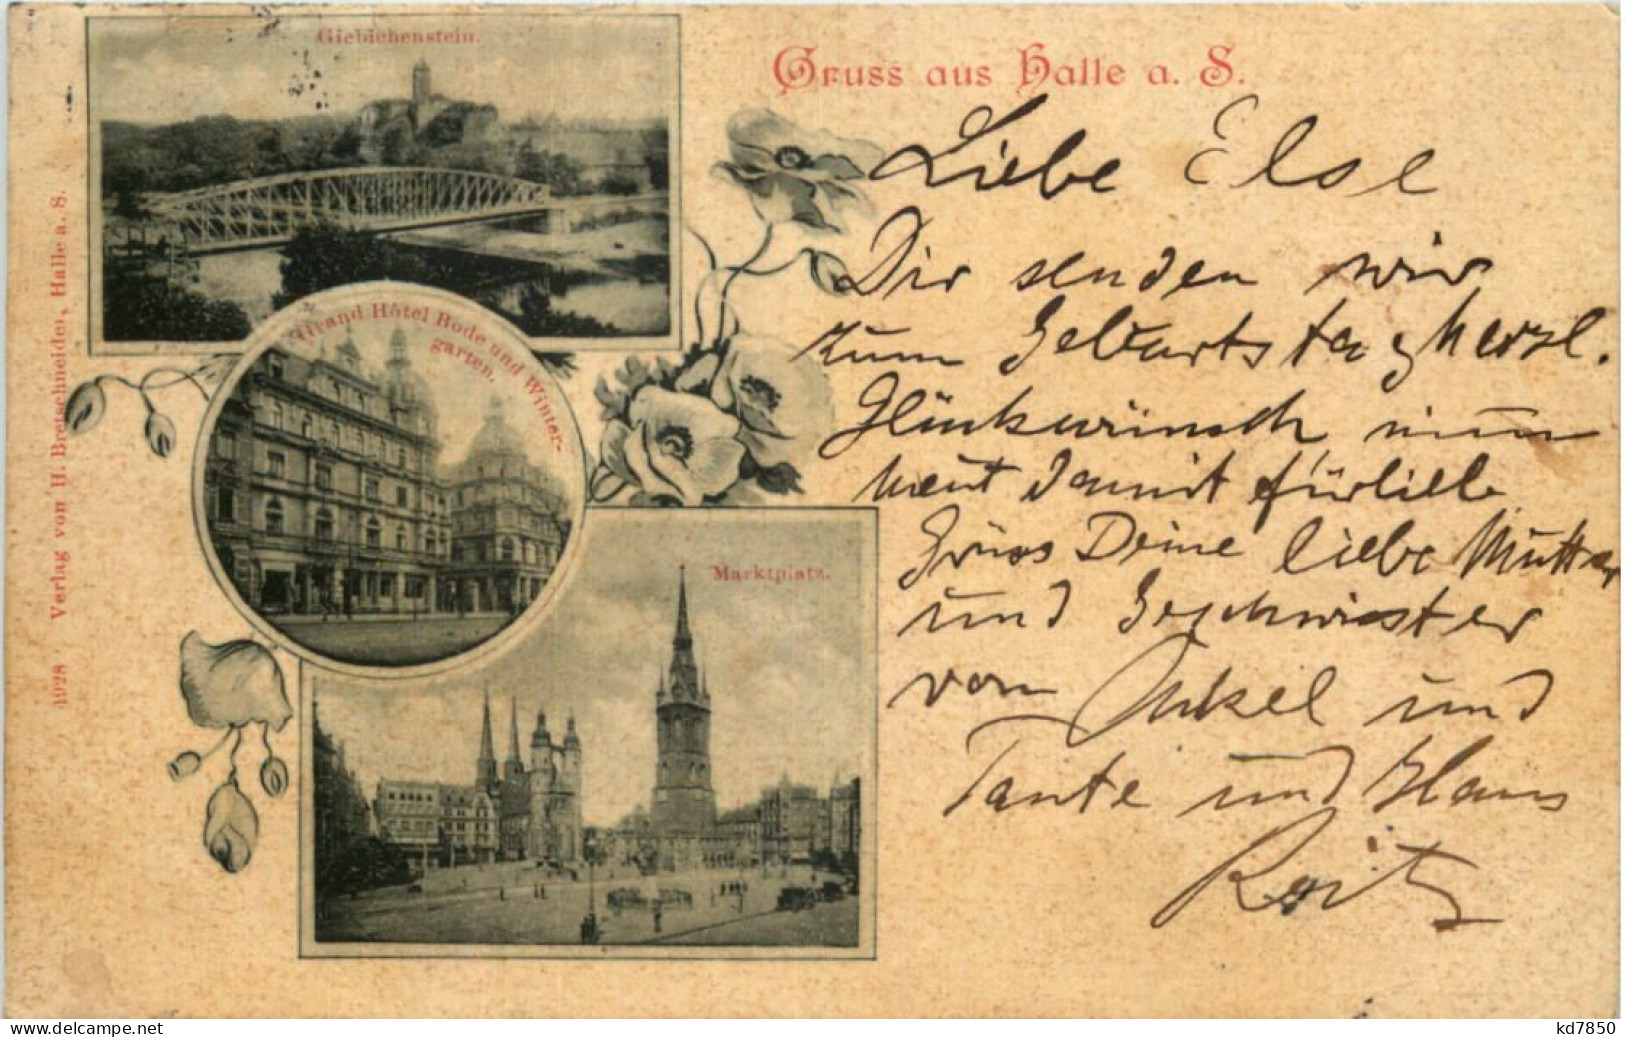 Giebichenstein.
Gruss aus Halle a. S.
Grand Hôtel Bode und Winter-
garten.
Marktplatz.
1928 Verlag von H. Bretschneider, Halle a. S.
Liebe Else
Dir senden wir
zum Geburtstag herzl.
Glückwünsch nimm
heut damit fürlieb
Grüss Deine liebe Mutter
und Geschwister
von Onkel und
Tante und Hans
delcampe.net
kd7850